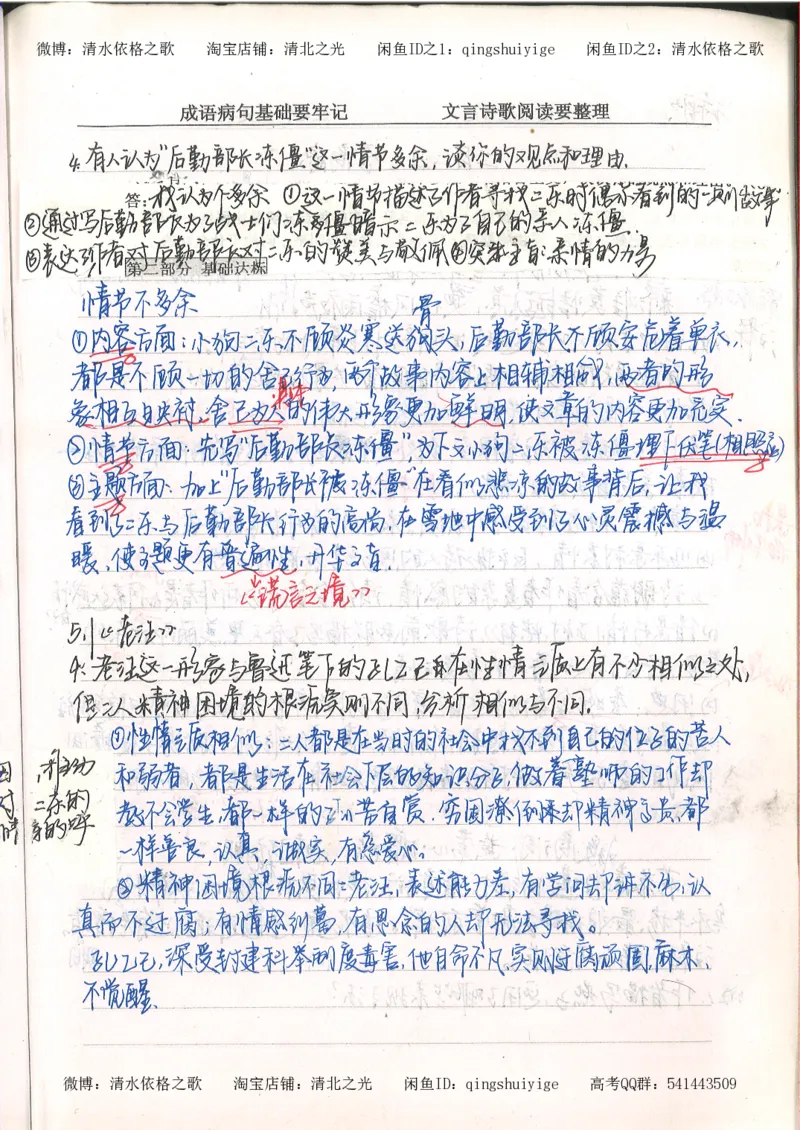 微博：清水依格之歌 淘宝店铺：清北之光 闲鱼ID之1：qingshuiyige 闲鱼ID之2：清水依格之歌
成语病句基础要牢记 文言诗歌阅读要整理
4.有人认为"后勤部长冻僵"这一情节多余，谈你的观点和理由.
答：我认为不多余 ①这一情节描述了作者寻找二乐时偶尔看到的一段故事
②通过写后勤部长为了战士们冻僵暗示二乐为了自己的亲人冻僵.
③表达作者对后勤部长对二乐的赞美与敬佩④突出主旨：柔情的力量
第二部分 基础达标
情节不多余
①内容方面：小狗二乐不顾炎寒送狗头骨，后勤部长不顾安危着单衣，
都是不顾一切的舍己行为，两个故事内容上相辅相成，两者的形
象相互映衬，舍己为人的伟大形象更加鲜明，使文章的内容更加充实.
②情节方面：先写"后勤部长冻僵"，为下文小狗二乐被冻僵埋下伏笔(相照应)
③主题方面：加上"后勤部长被冻僵"在看似悲凉的故事背后，让我
看到了二乐与后勤部长行为的高尚，在雪地中感受到了心灵震撼与温
暖，使主题更有普遍性，升华文旨.
《谎言之境》
5.《老汪》
4.老汪这一形象与鲁迅笔下的孔乙己的在性情气质上有不少相似之处，
但二人精神困境的根源实则不同，分析相似与不同.
①性情气质相似：二人都是在当时的社会中找不到自己的位子的苦人
和弱者，都是生活在社会下层的知识分子，做着塾师的工作却
教不会学生，都一样的孤苦自赏.穷困潦倒却精神高贵，都
一样善良、认真、诚实，有慈爱心。
②精神困境根源不同：老汪，表述能力差，有学问却讲不出，认
真而不迂腐；有情感纠葛，有思念的人却无法寻找。
孔乙己，深受封建科举制度毒害，他自命不凡，实则迂腐顽固，麻木，
不觉醒.
二乐的
微博：清水依格之歌 淘宝店铺：清北之光 闲鱼ID：qingshuiyige 高考QQ群：541443509